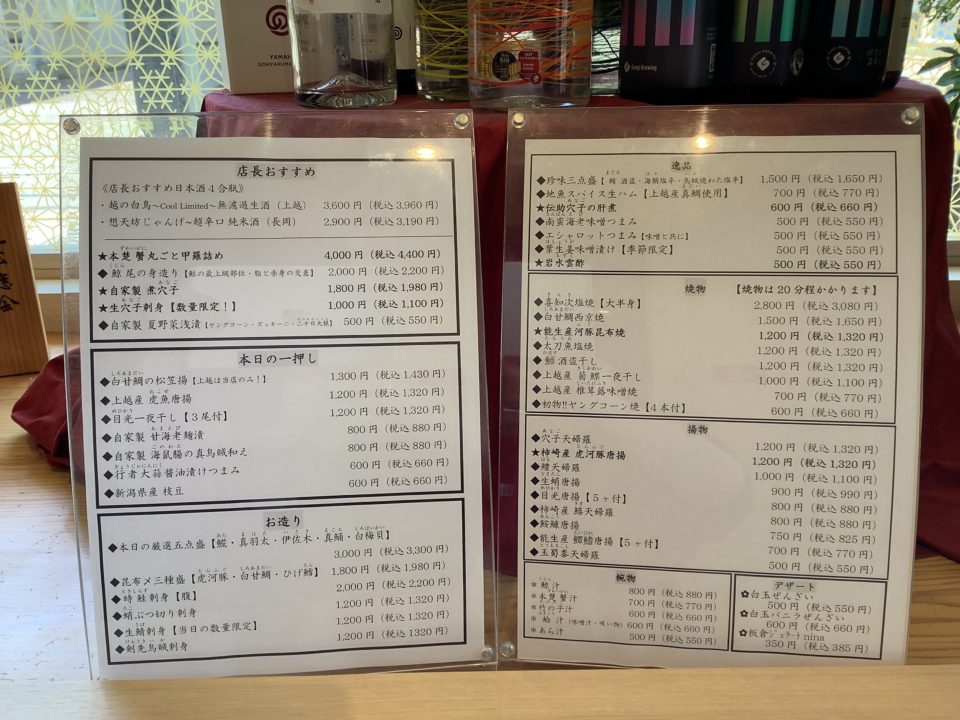 YAMAH
GOHYAKUMA
店長おすすめ
《店長おすすめ日本酒４合瓶》
・越の白鳥～Cool Limited～無濾過生酒（上越） 3,600円（税込3,960円）
・想天坊じゃんげ～超辛口 純米酒（長岡） 2,900円（税込3,190円）
★本楚蟹丸ごと甲羅詰め 4,000円（税込4,400円）
◆鯨 尾の身造り【鯨の最上級部位・脂と赤身の交差】 2,000円（税込2,200円）
★自家製 煮穴子 1,800円（税込1,980円）
★生穴子刺身【数量限定！】 1,000円（税込1,100円）
◆自家製 夏野菜浅漬【ヤングコーン・ズッキーニ・二十日大根】 500円（税込550円）
本日の一押し
◆白甘鯛の松笠揚【上越は当店のみ！】 1,300円（税込1.430円）
◆上越産 虎魚唐揚 1,200円（税込1,320円）
◆目光一夜干し【３尾付】 1,200円（税込1,320円）
◆自家製 甘海老麹漬 800円（税込880円）
◆自家製 海鼠腸の真烏賊和え 800円（税込880円）
◆行者大蒜醤油漬けつまみ 600円（税込660円）
◆新潟県産 枝豆 600円（税込660円）
お造り
◆本日の厳選五点盛【鰀・真羽太・伊佐木・真鯒・白梅貝】
3,000円（税込3,300円）
◆昆布〆三種盛【虎河豚・白甘鯛・ひげ鱈】 1,800円（税込1,980円）
◆時鮭刺身【腹】 2,000円（税込2,200円）
◆蛸ぶつ切り刺身 1,200円（税込1,320円）
◆生鯖刺身【当日の数量限定】 1,200円（税込1,320円）
◆剣先烏賊刺身 1,200円（税込1320円）
逸品
◆珍味三点盛【鮪 酒盗・海鞘塩辛・烏賊焼わた塩辛】 1,500円（税込1,650円）
◆地魚スパイス生ハム【上越産真鯛使用】 700円（税込770円）
★伝助穴子の肝煮 600円（税込660円）
◆南蛮海老味噌つまみ 500円（税込550円）
◆エシャロットつまみ【味噌と共に】 500円（税込550円）
◆葉生姜味噌漬け【季節限定】 500円（税込550円）
★岩水雲酢 500円（税込550円）
焼物 【焼物は20分程かかります】
◆喜知次塩焼【大半身】 2,800円（税込3,080円）
◆白甘鯛西京焼 1,500円（税込1,650円）
★能生産河豚昆布焼 1,200円（税込1,320円）
◆太刀魚塩焼 1,200円（税込1,320円）
◆鰤 酒盗干し 1,200円（税込1,320円）
◆上越産 菊鰈一夜干し 1,000円（税込1,100円）
◆上越産 椎茸蕗味噌焼 700円（税込770円）
◆初物!!ヤングコーン焼【４本付】 600円（税込660円）
揚物
◆穴子天婦羅 1,200円（税込1,320円）
★柿崎産虎河豚唐揚 1,200円（税込1,320円）
◆鱧天婦羅 1,000円（税込1,100円）
◆生蛸唐揚 900円（税込990円）
◆目光唐揚【５ヶ付】 800円（税込880円）
◆柿崎産 鱚天婦羅 800円（税込880円）
◆鮟鱇唐揚 750円（税込825円）
◆能生産 鱏鰭唐揚【５ヶ付】 700円（税込770円）
◆玉蜀黍天婦羅 500円（税込550円）
椀物
＊鯨汁 800円（税込880円）
＊本楚蟹汁 700円（税込770円）
＊竹の子汁 600円（税込660円）
＊蛤 汁（味噌汁・吸い物） 600円（税込660円）
＊あら汁 500円（税込550円）
デザート
✿白玉ぜんざい
500円（税込550円）
✿白玉バニラぜんざい
600円（税込660円）
✿板倉ｼﾞｪﾗｰﾄnina
350円（税込385円）